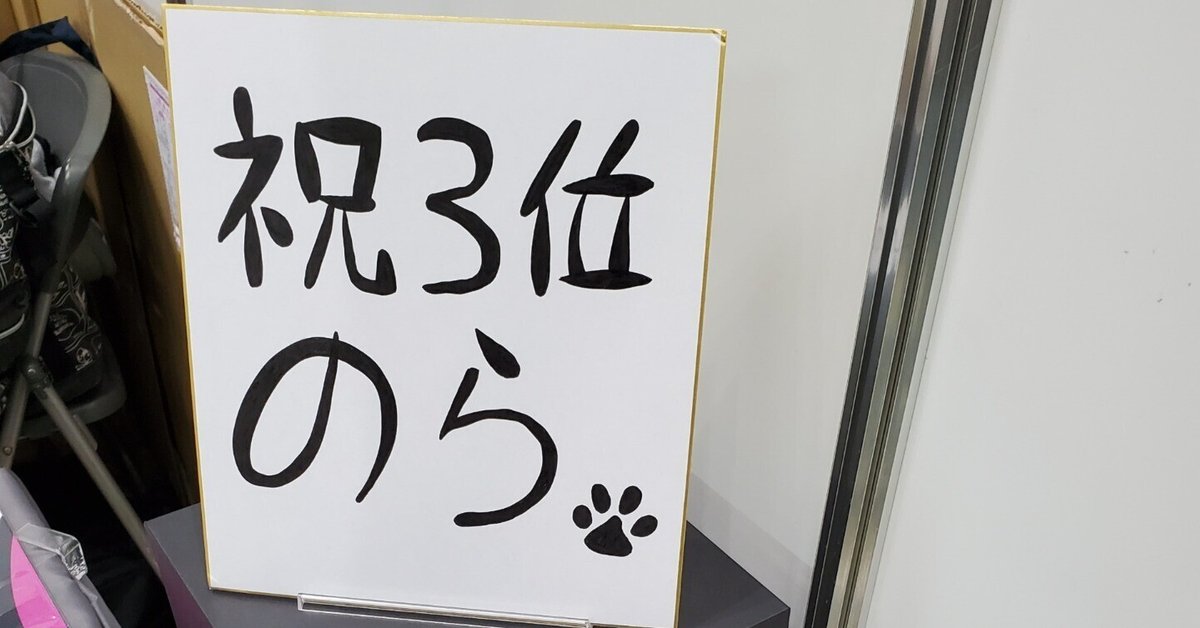 祝3位
のら